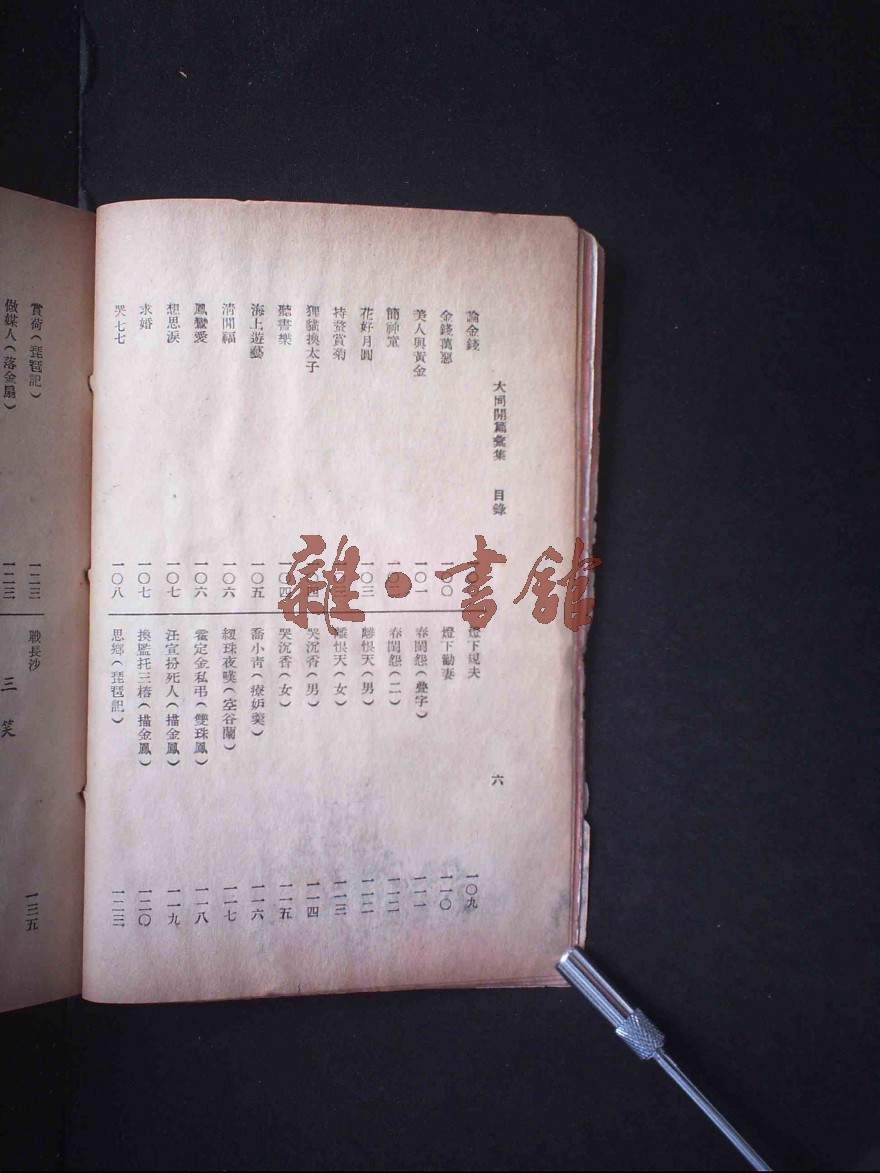 大同開篇彙集 目錄 六
論金錢
金錢萬惡 一〇〇
美人與黃金 一〇一
閙神童
花好月圓 一〇三
持螯賞菊 一〇三
狸貓換太子 一〇四
聽書樂 一〇四
海上遊藝 一〇五
清閒福 一〇六
鳳鸞愛 一〇六
想思淚 一〇七
求婚 一〇七
哭七七 一〇八
燈下規夫 一〇九
燈下勸妻 一一〇
春閨怨(疊字) 一一一
春閨怨(二) 一一二
離恨天(男) 一一二
離恨天(女) 一一三
哭沉香(男) 一一四
哭沉香(女) 一一五
喬小青(療妒羹) 一一六
紉珠夜嘆(空谷蘭) 一一七
霍定金私弔(雙珠鳳) 一一八
汪宣扮死人(描金鳳) 一一九
換監托三樁(描金鳳) 一二〇
思鄉(琵琶記) 一二三
賞荷(琵琶記) 一二三
做媒人(落金扇) 一二三
戰長沙 一三五
三笑
雜·書館